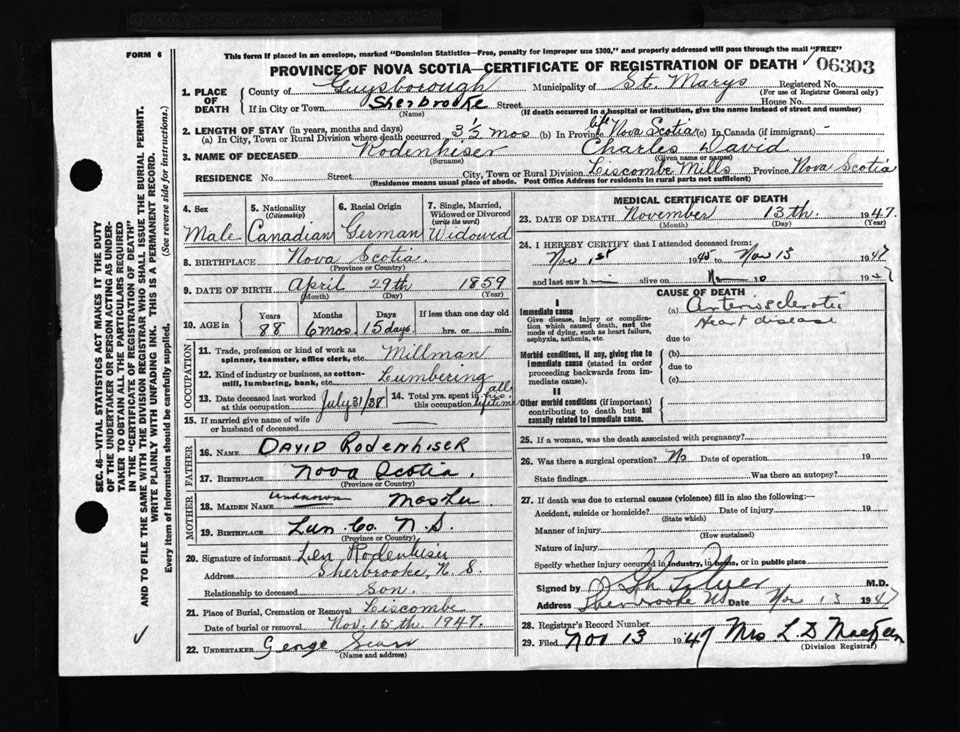 FORM 6
This form if placed in an envelope, marked "Dominion Statistics—Free, penalty for improper use $300," and properly addressed will pass through the mail "FREE"
PROVINCE OF NOVA SCOTIA—CERTIFICATE OF REGISTRATION OF DEATH
06303
1. PLACE OF DEATH
County of Guysborough Municipality of St. Marys Registered No.
(For use of Registrar General only)
If in City or Town Sherbrooke Street House No.
(Name) (If death occurred in a hospital or institution, give the name instead of street and number)
2. LENGTH OF STAY (in years, months and days)
(a) In City, Town or Rural Division where death occurred 3½ mos (b) In Province life Nova Scotia (c) In Canada (if immigrant) -
3. NAME OF DECEASED Rodenhiser Charles David
(Surname) (Given name or names)
RESIDENCE No. Street City, Town or Rural Division Liscombe Mills Province Nova Scotia
(Residence means usual place of abode. Post Office Address for residents in rural parts not sufficient)
4. Sex Male
5. Nationality (Citizenship) Canadian
6. Racial Origin German
7. Single, Married, Widowed or Divorced (write the word) Widowed
8. BIRTHPLACE Nova Scotia
(Province or Country)
9. DATE OF BIRTH April 29th 1859
(Month) (Day) (Year)
10. AGE in Years Months Days If less than one day old
88 6 mos. 15 days hrs. or min.
OCCUPATION
11. Trade, profession or kind of work as spinner, teamster, office clerk, etc. Millman
12. Kind of industry or business, as cotton-mill, lumbering, bank, etc. Lumbering
13. Date deceased last worked at this occupation July 31/38
14. Total yrs. spent in this occupation all his lifetime
15. If married give name of wife or husband of deceased
FATHER
16. NAME David Rodenhiser
17. BIRTHPLACE Nova Scotia.
(Province or Country)
MOTHER
18. MAIDEN NAME unknown
19. BIRTHPLACE Lun. Co. N.S.
(Province or Country)
20. Signature of informant Len Rodenhiser
Address Sherbrooke, N.S.
Relationship to deceased Son.
21. Place of Burial, Cremation or Removal Liscombe
Date of burial or removal Nov. 15th. 1947.
22. UNDERTAKER George
(Name and address)
MEDICAL CERTIFICATE OF DEATH
23. DATE OF DEATH November 13th. 1947.
(Month) (Day) (Year)
24. I HEREBY CERTIFY that I attended deceased from:
Nov 1st 1945 to Nov 13 1947
and last saw h alive on 10 1947
CAUSE OF DEATH
I
Immediate cause
Give disease, injury or complication which caused death, not the mode of dying, such as heart failure, asphyxia, asthenia, etc.
(a) Arteriosclerotic
Heart disease
due to
Morbid conditions, if any, giving rise to immediate cause (stated in order proceeding backwards from immediate cause).
(b)
due to
(c)
II
Other morbid conditions (if important) contributing to death but not causally related to immediate cause.
25. If a woman, was the death associated with pregnancy?
26. Was there a surgical operation? No Date of operation 19
State findings Was there an autopsy?
27. If death was due to external causes (violence) fill in also the following:—
Accident, suicide or homicide? Date of injury 19
(State which)
Manner of injury
(How sustained)
Nature of injury
Specify whether injury occurred in industry, in home, or in public place
Signed by M.D.
Address Sherbrooke NS Date Nov 13 1947
28. Registrar's Record Number
29. Filed Nov 13 1947 Mrs L D MacKeen
(Division Registrar)
SEC. 46—VITAL STATISTICS ACT MAKES IT THE DUTY
OF THE UNDERTAKER OR PERSON ACTING AS UNDER-
TAKER TO OBTAIN ALL THE PARTICULARS REQUIRED
IN THE "CERTIFICATE OF REGISTRATION OF DEATH"
AND TO FILE THE SAME WITH THE DIVISION REGISTRAR WHO SHALL ISSUE THE BURIAL PERMIT.
WRITE PLAINLY WITH UNFADING INK. THIS IS A PERMANENT RECORD.
Every item of information should be carefully supplied. (See reverse side for instructions.)